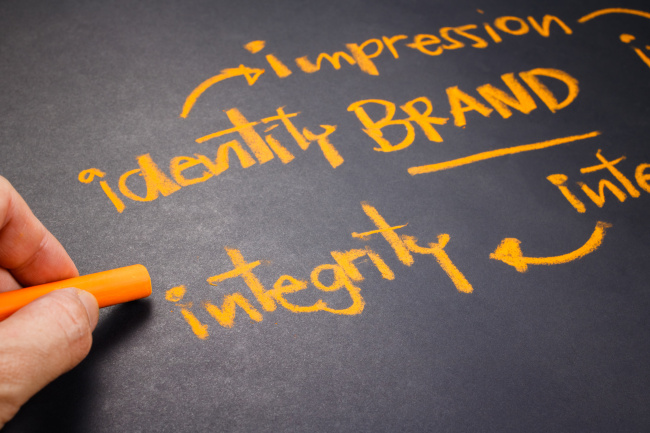 impression
identity BRAND
integrity